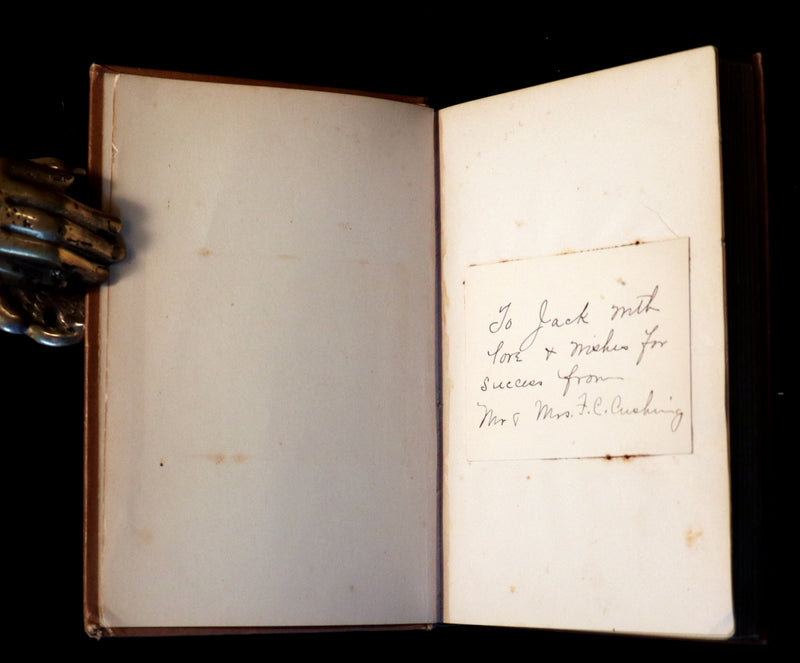 To Jack with
love & wishes for
success from
Mr & Mrs. F. C. Cushing